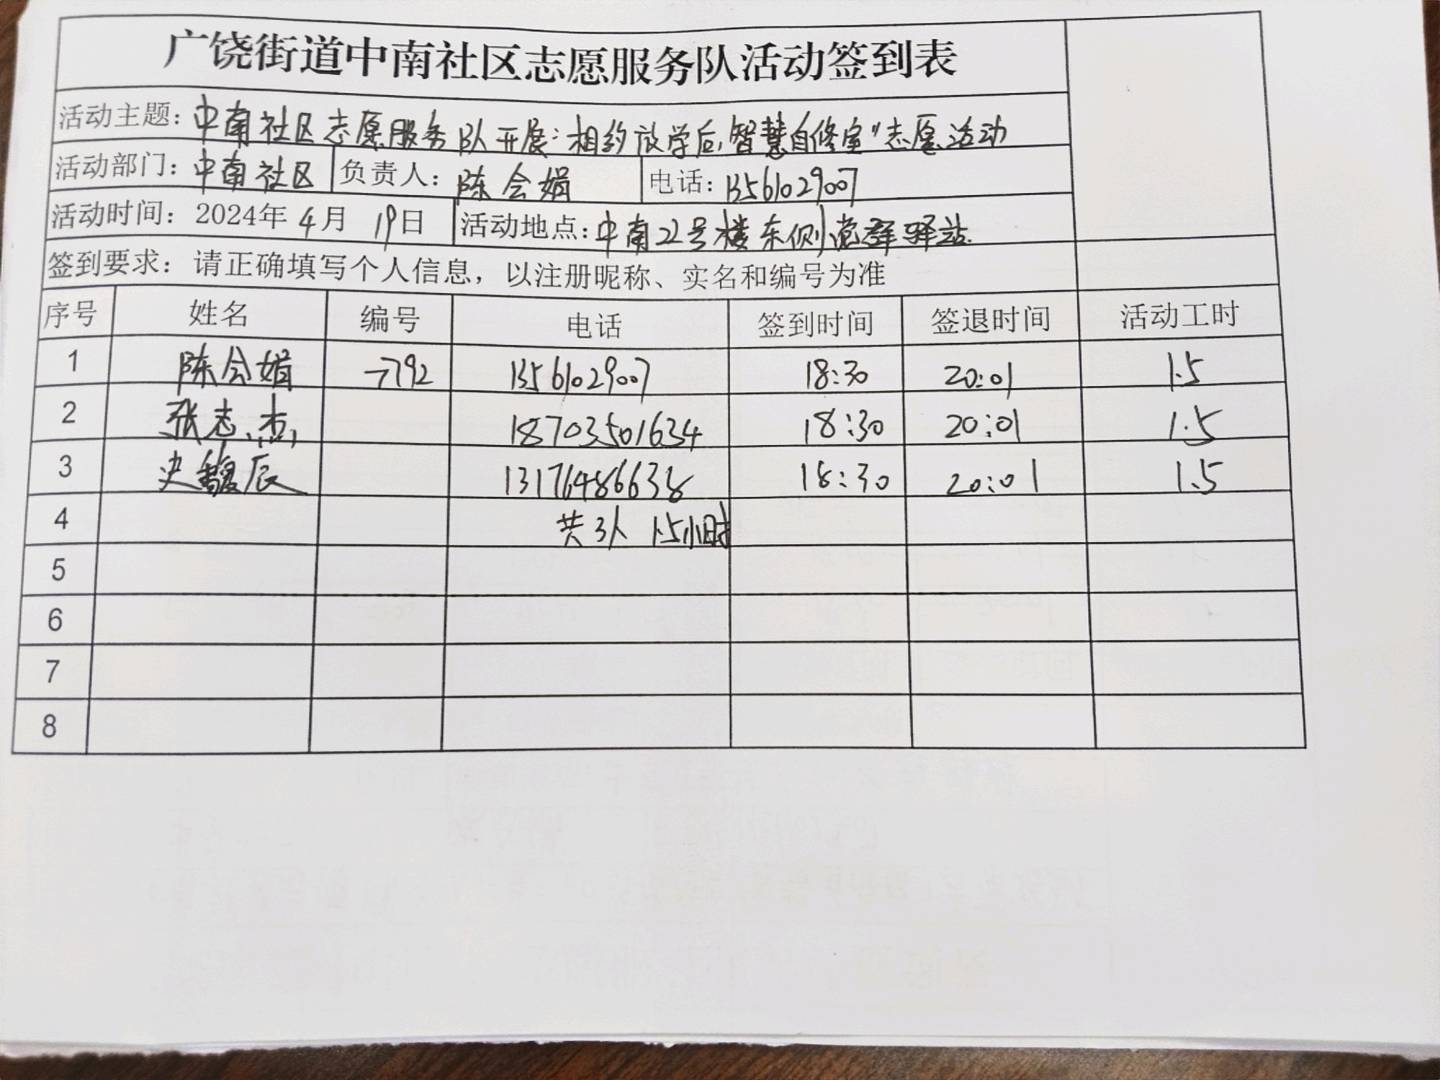 广饶街道中南社区志愿服务队活动签到表
活动主题：中南社区志愿服务队开展：相约放学后，智慧自修室"志愿活动
活动部门：中南社区 负责人：陈会娟 电话：13561029007
活动时间：2024年4月19日 活动地点：中南22号楼东侧党群驿站
签到要求：请正确填写个人信息，以注册昵称、实名和编号为准
序号 姓名 编号 电话 签到时间 签退时间 活动工时
1 陈会娟 7792 13561029007 18:30 20:01 1.5
2 张志杰 18703501634 18:30 20:01 1.5
3 史馥辰 13176486638 18:30 20:01 1.5
4 共3人 1.5小时
5
6
7
8